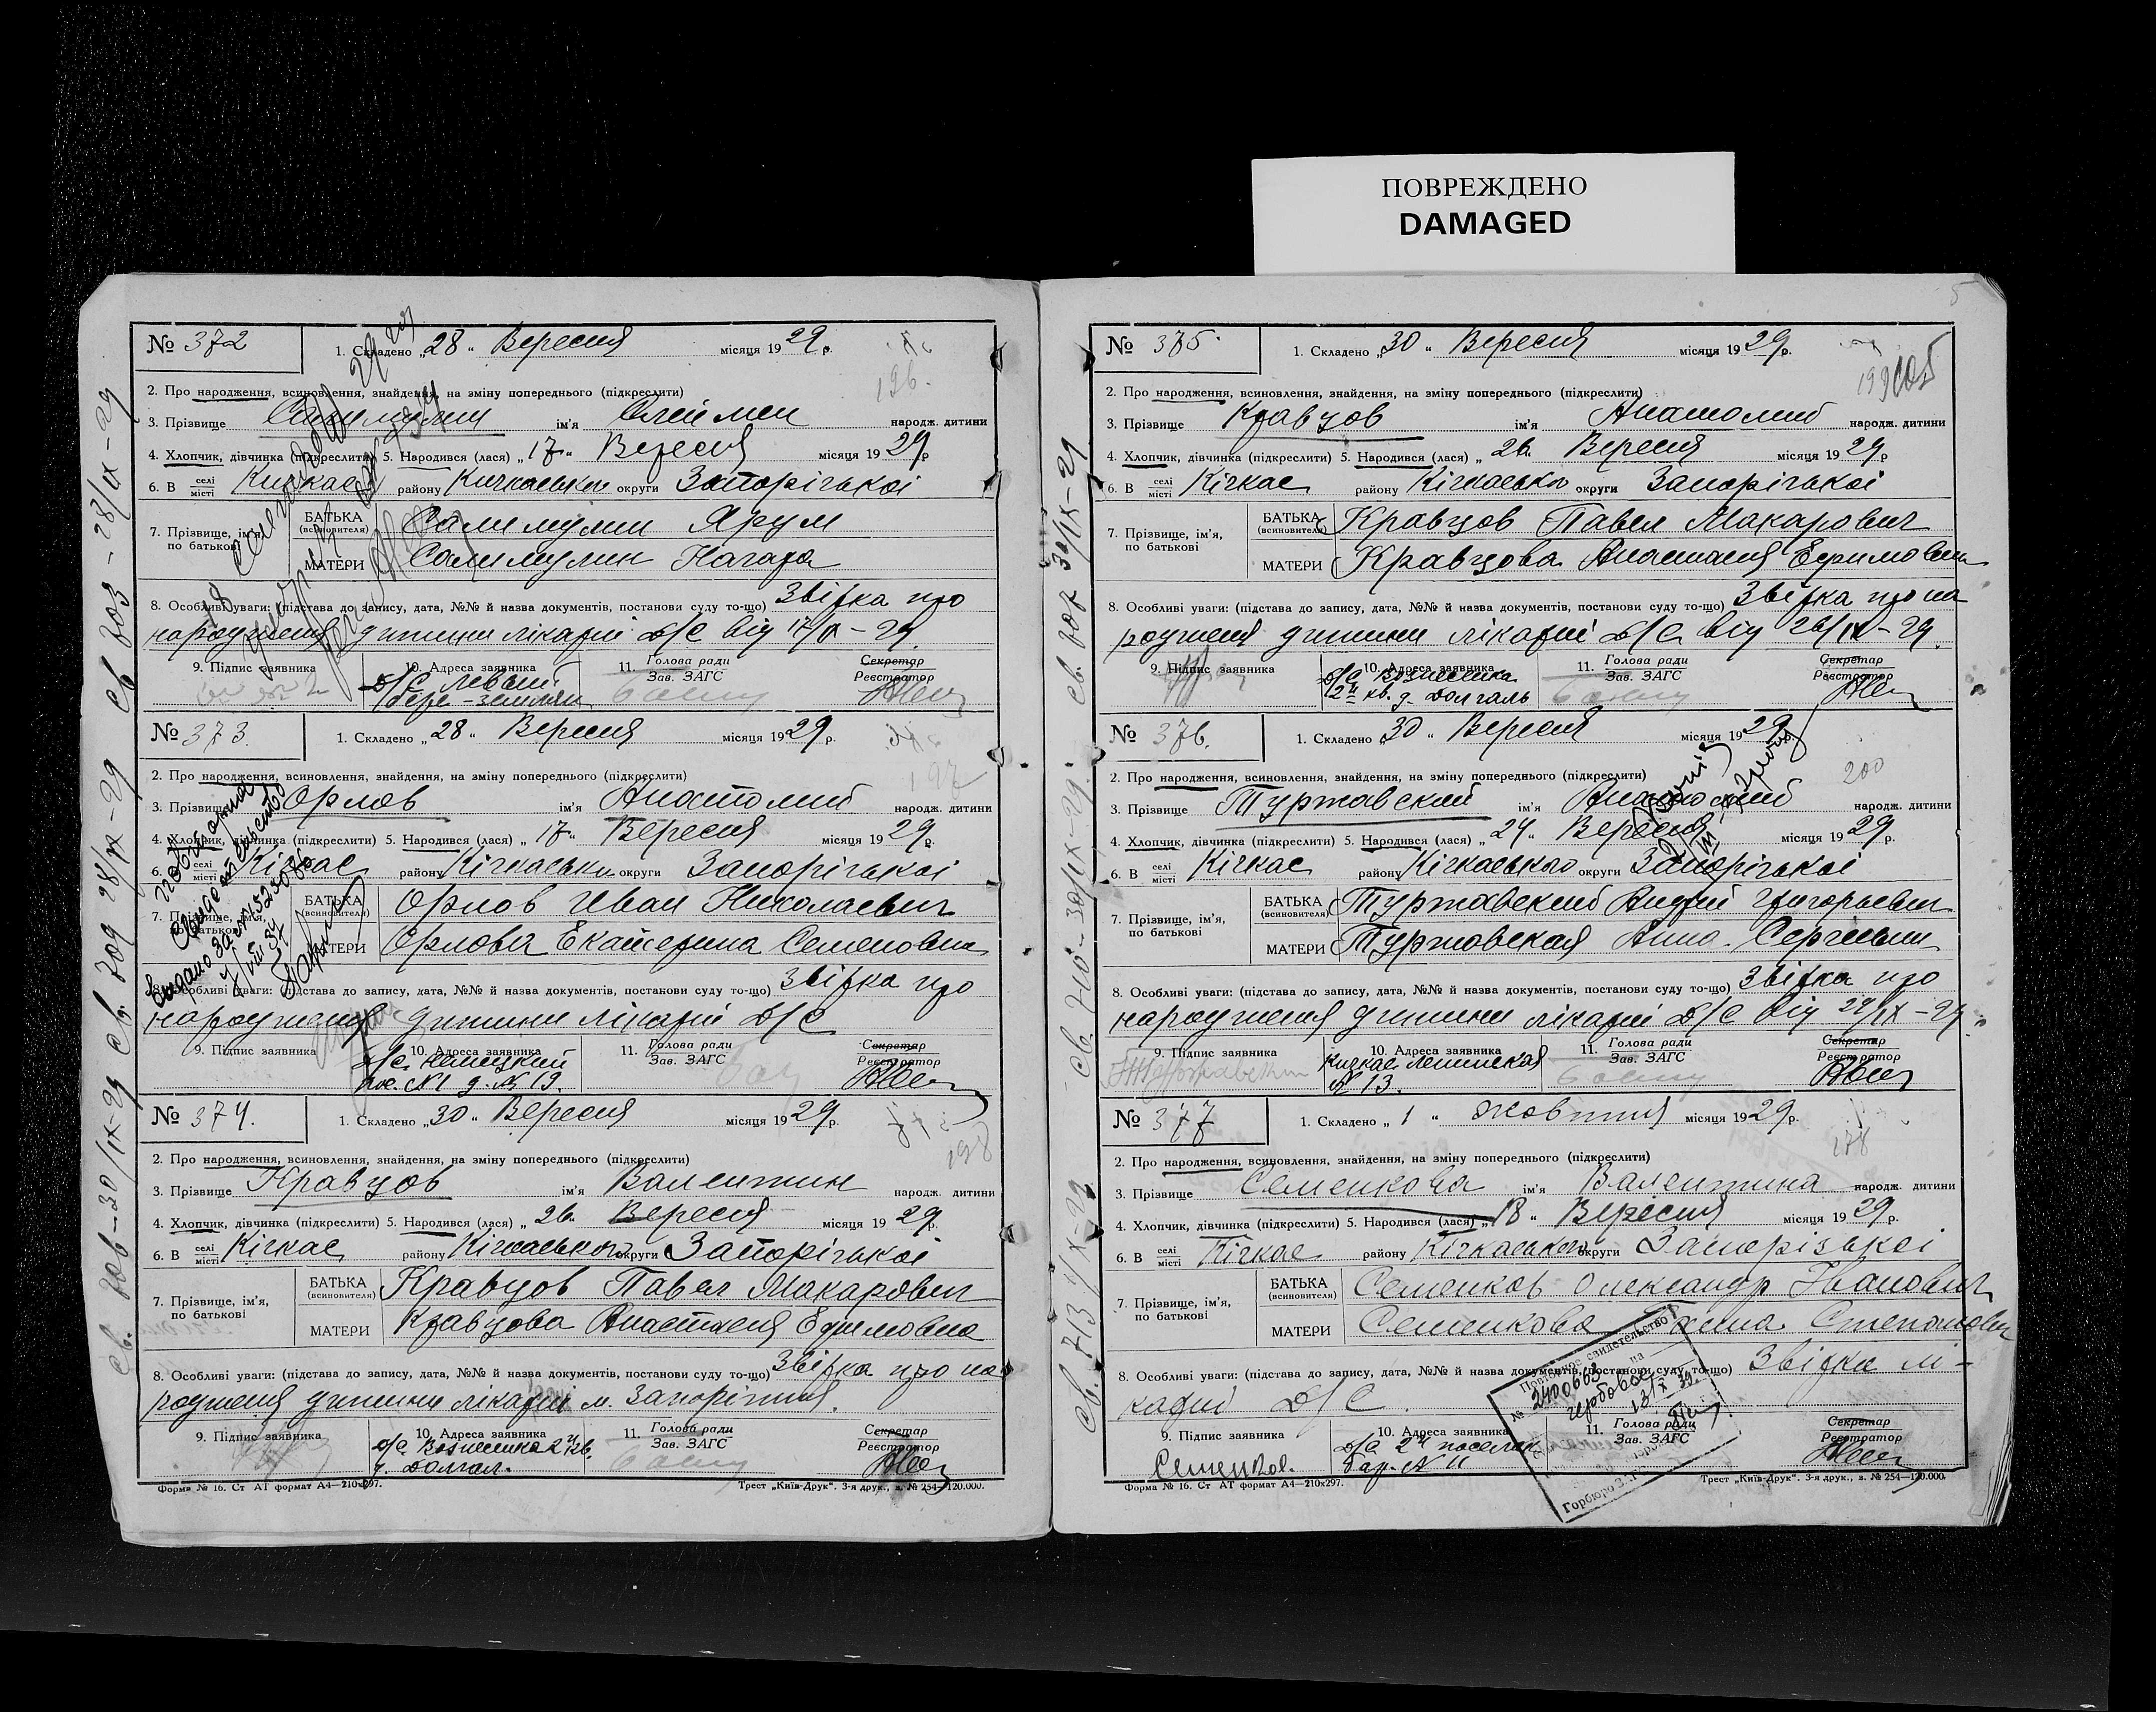 ПОВРЕЖДЕНО
DAMAGED
№ 372
1. Складено „28" Вересня місяця 1929 р.
196.
2. Про народження, всиновлення, знайдення, на зміну попереднього (підкреслити)
3. Прізвище Салимулин ім'я народж. дитини
4. Хлопчик, дівчинка (підкреслити) 5. Народився (лася) „17" Вересня місяця 1929 р
6. В селі місті Кичкас району Кичкаського округи Запорізької
7. Прізвище, ім'я, по батькові
БАТЬКА (всиновителя) Салимулин Ярум
МАТЕРИ Салимулин Нагара
8. Особливі уваги: (підстава до запису, дата, №№ й назва документів, постанови суду то-що) Звідка про
народження дитини лікарні Д/С від 17/IX-29.
9. Підпис заявника
10. Адреса заявника Д/С левый берег - землян
11. Голова ради Зав. ЗАГС
Секретар Реєстратор
св 703 - 28/IX-29
№ 373.
1. Складено „28" Вересня місяця 1929 р.
197
2. Про народження, всиновлення, знайдення, на зміну попереднього (підкреслити)
3. Прізвище Орлов ім'я Анатолий народж. дитини
4. Хлопчик, дівчинка (підкреслити) 5. Народився (лася) „17" Вересня місяця 1929 р.
6. В селі місті Кічкас району Кічкаського округи Запорізької
7. Прізвище, ім'я, по батькові
БАТЬКА (всиновителя) Орлов Иван Николаевич
МАТЕРИ Орлова Екатерина Семеновна
8. Особливі уваги: (підстава до запису, дата, №№ й назва документів, постанови суду то-що) Звідка про
народження дитини лікарні Д/С
9. Підпис заявника
10. Адреса заявника Д/С Немецкий пос. №1 д. №19.
11. Голова ради Зав. ЗАГС
Секретар Реєстратор
св. 709 28/IX-29
№ 374.
1. Складено „30" Вересня місяця 1929 р.
198
2. Про народження, всиновлення, знайдення, на зміну попереднього (підкреслити)
3. Прізвище Кравцов ім'я Валентин народж. дитини
4. Хлопчик, дівчинка (підкреслити) 5. Народився (лася) „26" Вересня місяця 1929 р.
6. В селі місті Кічкас району Кічкаського округи Запорізької
7. Прізвище, ім'я, по батькові
БАТЬКА (всиновителя) Кравцов Павел Макарович
МАТЕРИ Кравцова Анастасия Ефимовна
8. Особливі уваги: (підстава до запису, дата, №№ й назва документів, постанови суду то-що) Звідка про на
родження дитини лікарні м. Запоріжжя.
9. Підпис заявника
10. Адреса заявника Д/С Вознесенка 2й кв. д. Долгал.
11. Голова ради Зав. ЗАГС
Секретар Реєстратор
св. 706-30/IX-29
Форма № 16. Ст АТ формат А4—210х297.
Трест „Київ-Друк". 3-я друк., з. № 254—120.000.
№ 375.
1. Складено „30" Вересня місяця 1929 р.
199
2. Про народження, всиновлення, знайдення, на зміну попереднього (підкреслити)
3. Прізвище Кравцов ім'я Анатолий народж. дитини
4. Хлопчик, дівчинка (підкреслити) 5. Народився (лася) „26" Вересня місяця 1929 р
6. В селі місті Кічкас району Кічкаського округи Запорізької
7. Прізвище, ім'я, по батькові
БАТЬКА (всиновителя) Кравцов Павел Макарович
МАТЕРИ Кравцова Анастасия Ефимовна
8. Особливі уваги: (підстава до запису, дата, №№ й назва документів, постанови суду то-що) Звідка про на
родження дитини лікарні Д/С від 26/IX-29.
9. Підпис заявника
10. Адреса заявника Д/С Вознесенка 2й кв. д. Долгаль
11. Голова ради Зав. ЗАГС
Секретар Реєстратор
св. 707 30/IX-29
№ 376.
1. Складено „30" Вересня місяця 1929 р.
200
2. Про народження, всиновлення, знайдення, на зміну попереднього (підкреслити)
3. Прізвище Туржавский ім'я Анатолий народж. дитини
4. Хлопчик, дівчинка (підкреслити) 5. Народився (лася) „24" Вересня місяця 1929 р.
6. В селі місті Кічкас району Кічкаського округи Запорізької
7. Прізвище, ім'я, по батькові
БАТЬКА (всиновителя) Туржавский Андрій Григорьевич
МАТЕРИ Туржавская Анна Сергіевна
8. Особливі уваги: (підстава до запису, дата, №№ й назва документів, постанови суду то-що) Звідка про
народження дитини лікарні Д/С від 24/IX-29.
9. Підпис заявника
10. Адреса заявника Кичкас Ленинская №13.
11. Голова ради Зав. ЗАГС
Секретар Реєстратор
св. 710-30/IX-29.
№ 377
1. Складено „1" жовтня місяця 1929 р.
178
2. Про народження, всиновлення, знайдення, на зміну попереднього (підкреслити)
3. Прізвище Семенкова ім'я Валентина народж. дитини
4. Хлопчик, дівчинка (підкреслити) 5. Народився (лася) „18" Вересня місяця 1929 р.
6. В селі місті Кічкас району Кічкаського округи Запорізької
7. Прізвище, ім'я, по батькові
БАТЬКА (всиновителя) Семенков Олександр Іванович
МАТЕРИ Семенкова Ганна Степановна
8. Особливі уваги: (підстава до запису, дата, №№ й назва документів, постанови суду то-що) Звідка лі-
карні Д/С.
9. Підпис заявника Семенков.
10. Адреса заявника Д/С 2й поселок бар. № 11
11. Голова ради Зав. ЗАГС
Секретар Реєстратор
св. 713 1/X-29
свидетельство
№ 2400663
гербовое
Форма № 16. Ст АТ формат А4—210х297.
Трест „Київ-Друк". 3-я друк., з. № 254—120.000.